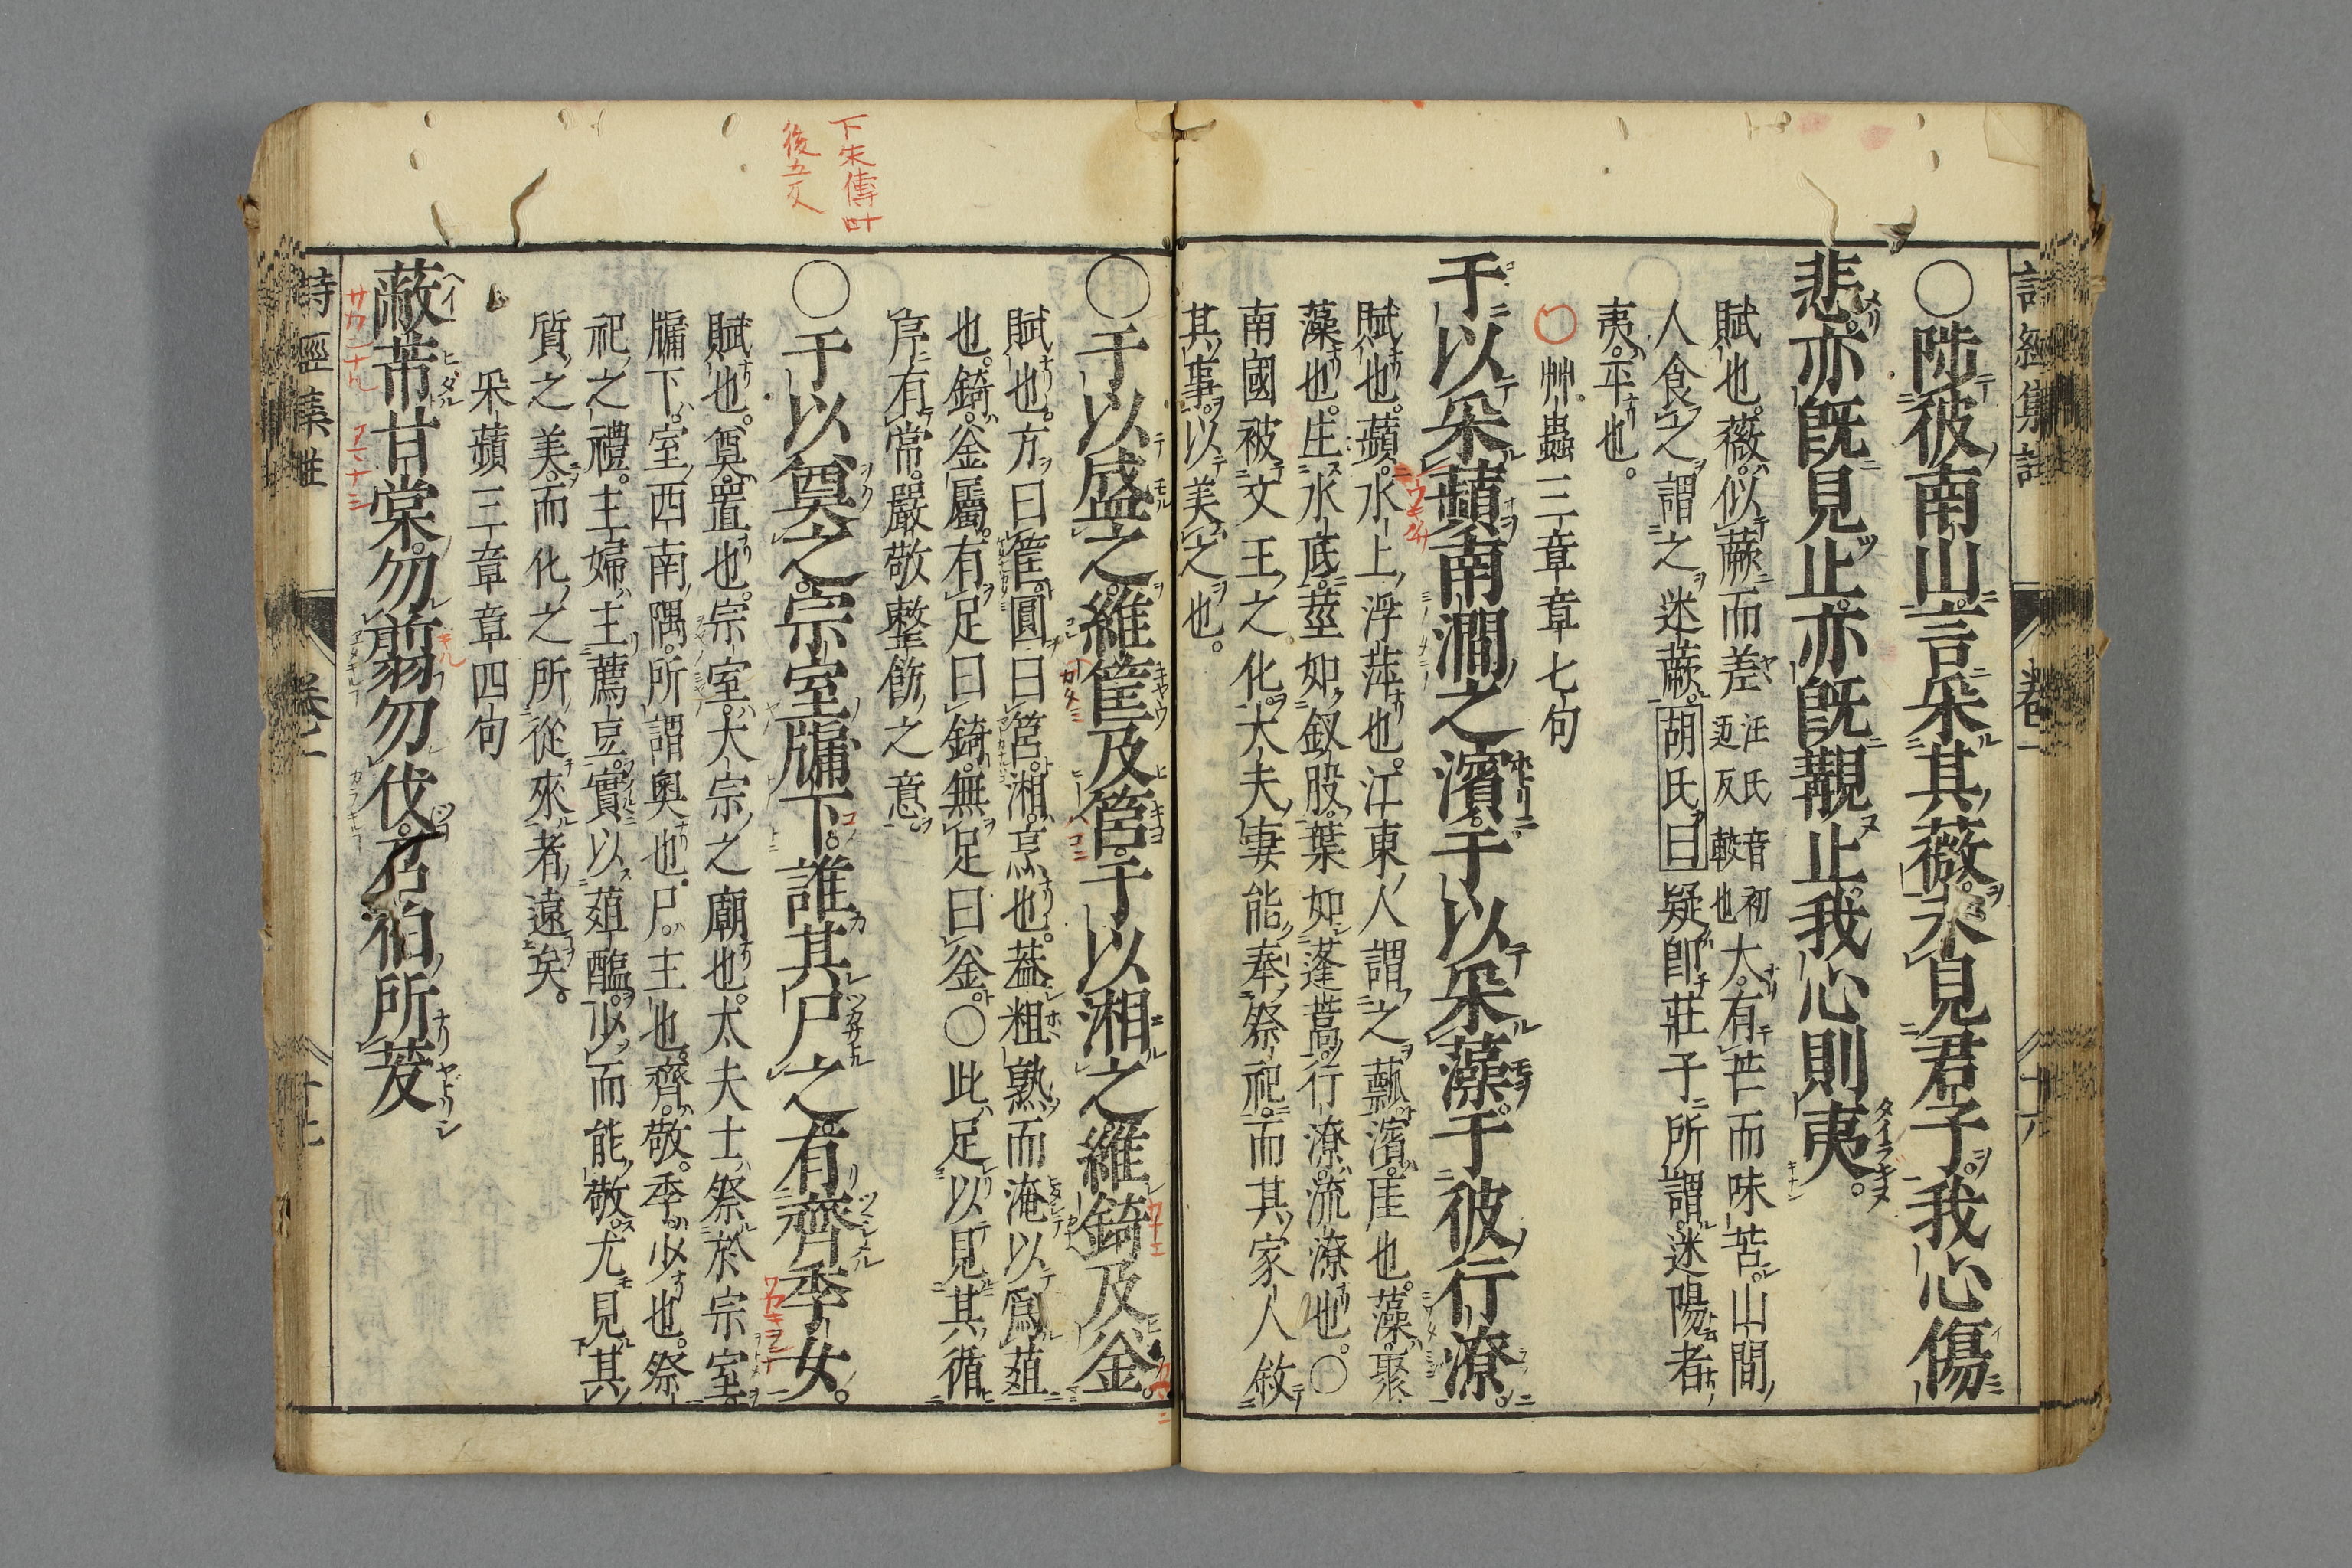 ○陟彼南山言采其薇未見君子我心傷
悲亦旣見止亦旣覯止我心則夷
賦也薇似蕨而差大有芒而味苦山間
人食之謂之迷蕨胡氏曰疑卽莊子所謂迷陽者
汪氏音初
邁反較也
夷平也
○艸蟲三章章七句
于以采蘋南澗之濱于以采藻于彼行潦
賦也蘋水上浮萍也江東人謂之薸濱厓也藻聚
藻也生水底莖如釵股葉如蓬蒿行潦流潦也○
南國被文王之化大夫妻能奉祭祀而其家人敘
其事以美之也
○于以盛之維筐及筥于以湘之維錡及釜
賦也方曰筐圓曰筥湘烹也蓋粗熟而淹以爲葅
也錡釜屬有足曰錡無足曰釜○此足以見其循
序有常嚴敬整飭之意
○于以奠之宗室牖下誰其尸之有齊季女
賦也奠置也宗室大宗之廟也大夫士祭於宗室
牖下室西南隅所謂奧也尸主也齊敬季少也祭
祀之禮主婦主薦豆實以葅醢少而能敬尤見其
質之美而化之所從來者遠矣
采蘋三章章四句
蔽芾甘棠勿翦勿伐召伯所茇
下朱傳叶
後五反
詩經集註
卷一
十六
詩經集註
卷一
十七